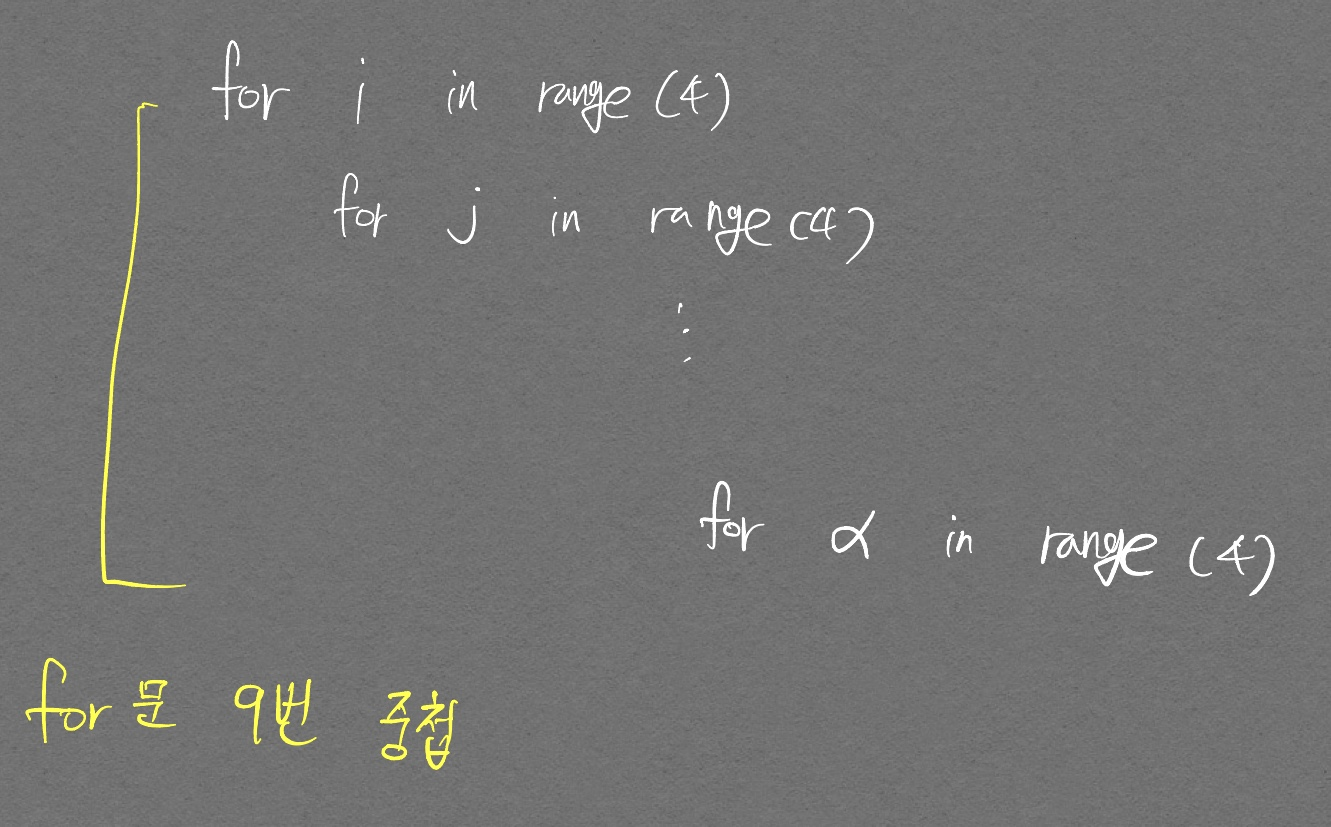 for i in range (4)
for j in range (4)
⋮
for α in range (4)
for문 9번 중첩